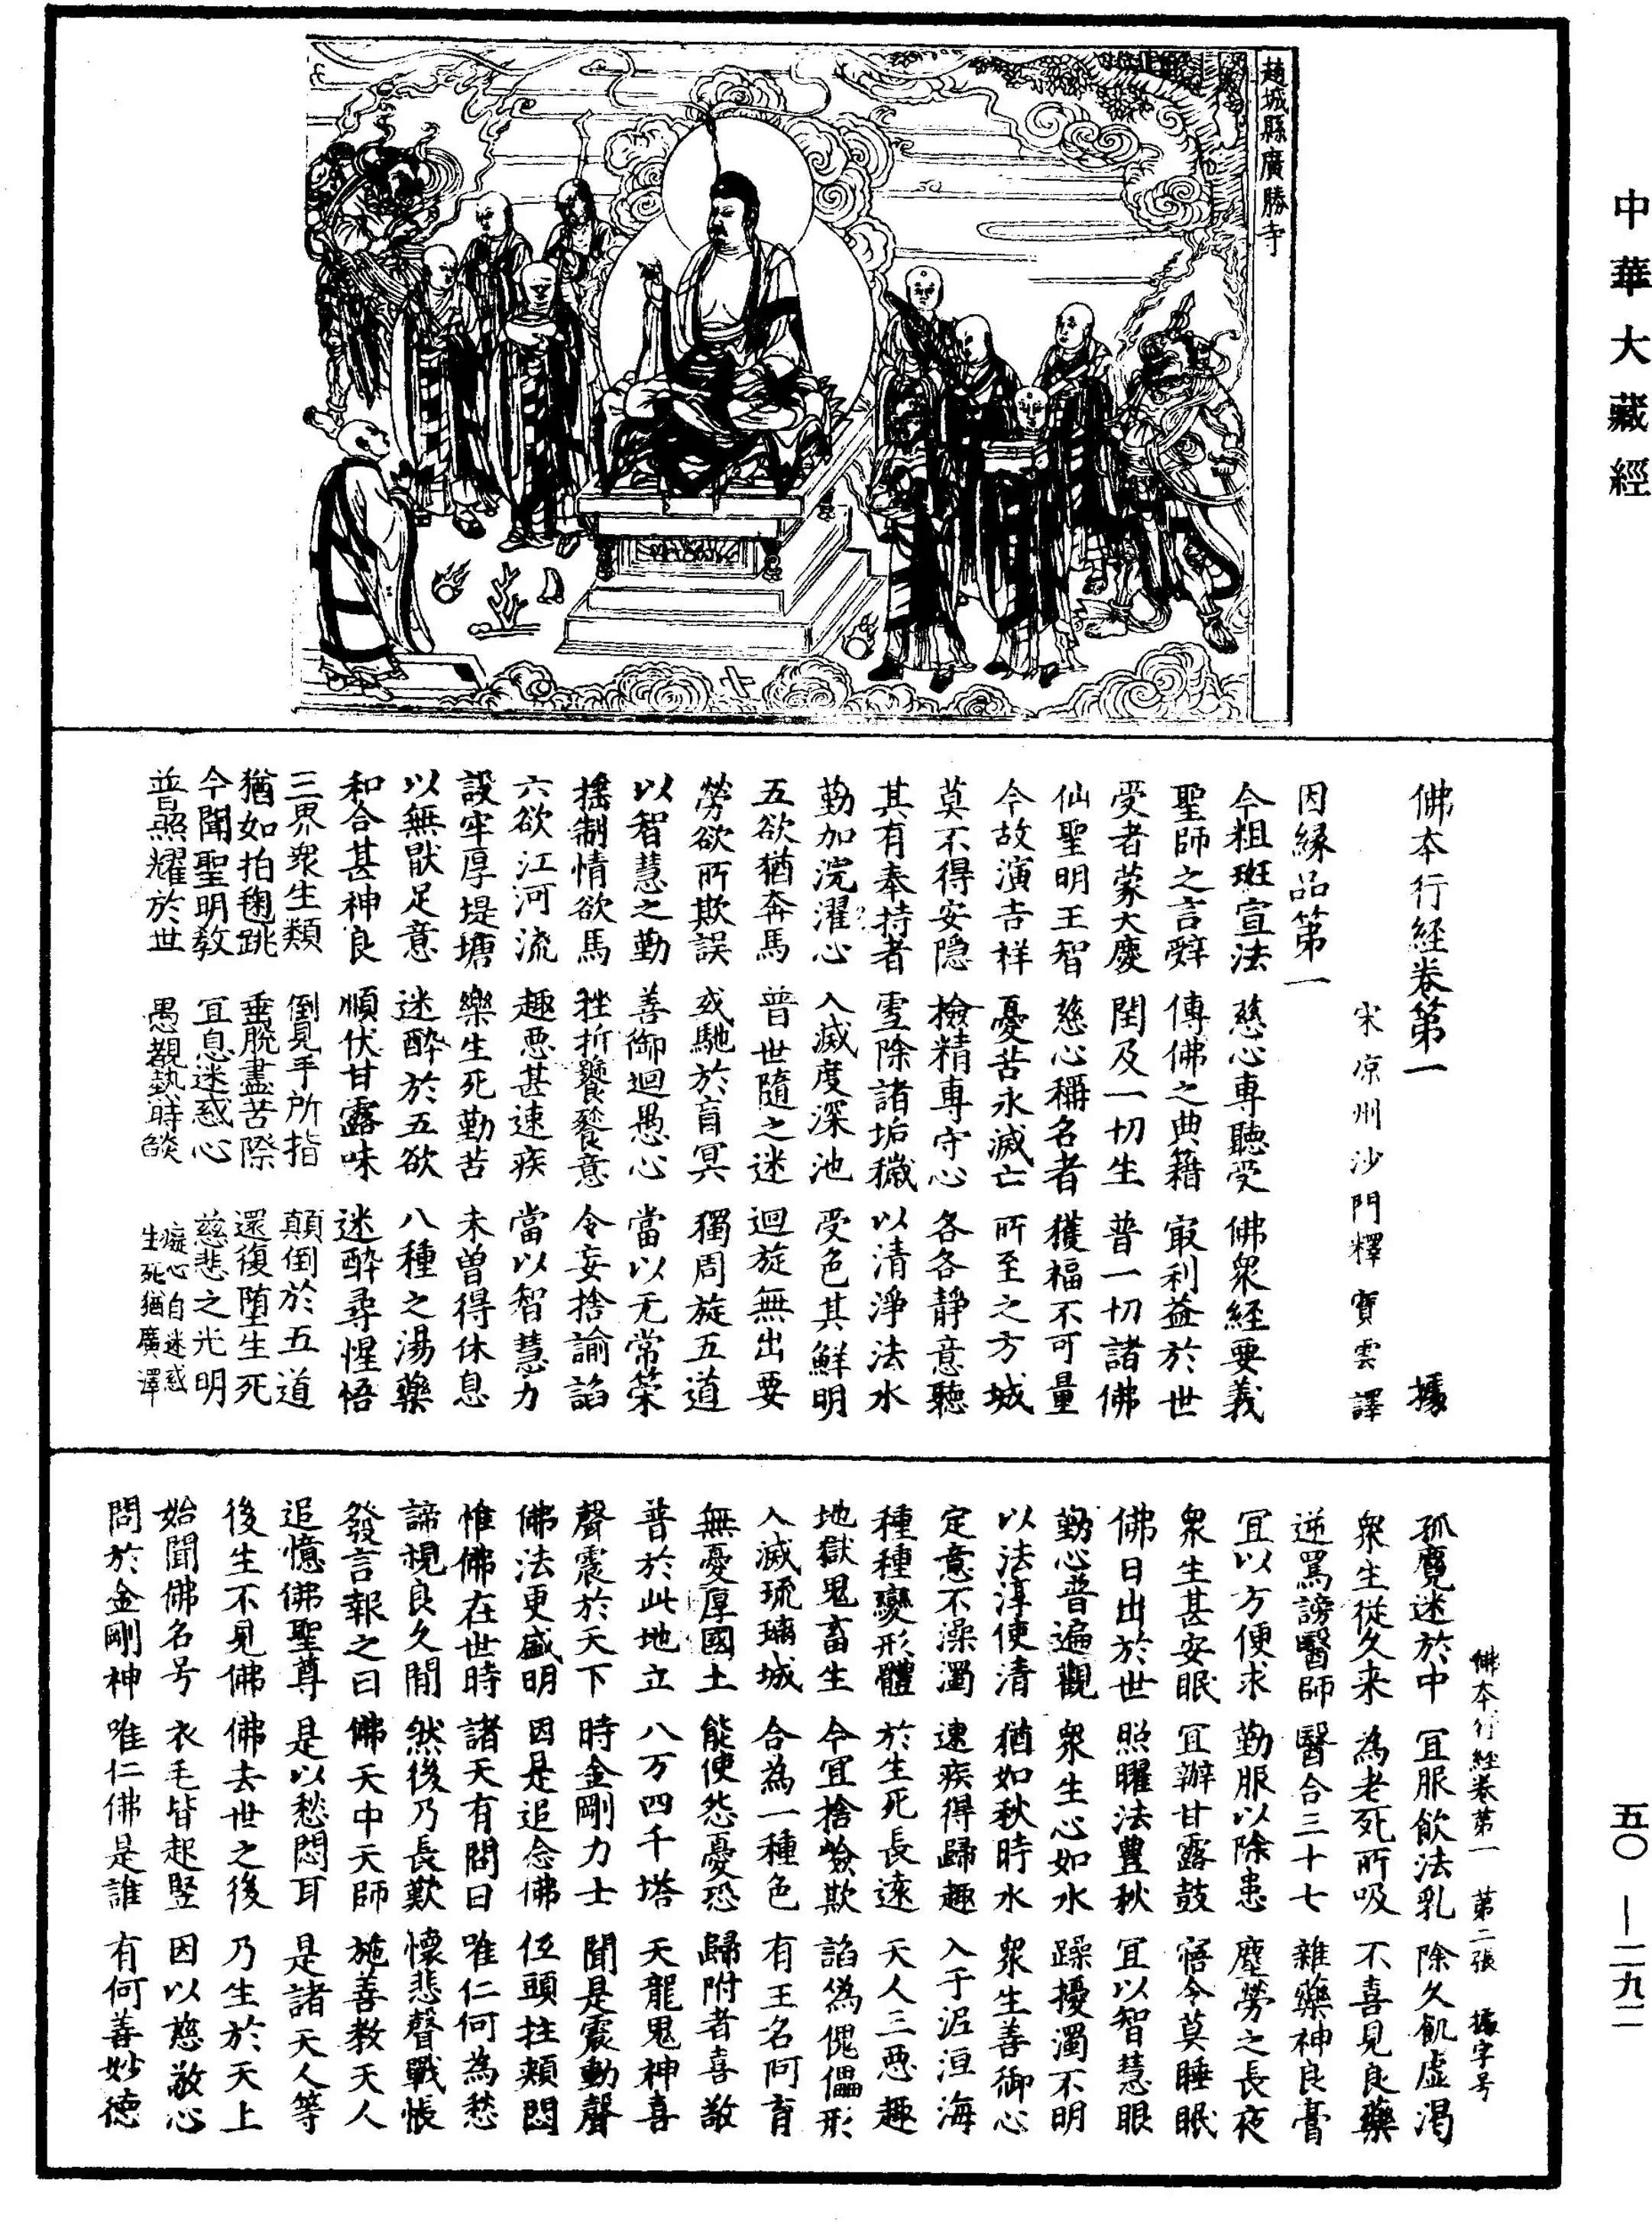 中華大藏經
五〇—二九二
趙城縣廣勝寺
佛本行經卷第一 據
宋凉州沙門釋寶雲譯
因縁品第一
今粗班宣法 慈心專聽受 佛衆經要義
聖師之言辤 傳佛之典籍 㝡利益於世
受者蒙大慶 閏及一切生 普一切諸佛
仙聖明王智 慈心稱名者 獲福不可量
今故演吉祥 憂苦永滅亡 所至之方城
莫不得安隱 撿精專守心 各各靜意聽
其有奉持者 雪除諸垢穢 以清淨法水
勤加浣濯心 入滅度深池 受色其鮮明
五欲猶奔馬 普世隨之迷 迴旋無出要
勞欲所欺誤 或馳於盲冥 獨周旋五道
以智慧之勤 善御迴愚心 當以无常策
揺制情欲馬 挫折饕餮意 令妄捨諭諂
六欲江河流 趣惡甚速疾 當以智慧力
設牢厚堤塘 樂生死勤苦 未曽得休息
以無猒足意 迷醉於五欲 八種之湯藥
和合甚神良 順伏甘露味 迷醉尋惺悟
三界衆生類 倒見手所指 顛倒於五道
猶如拍鞠跳 垂脫盡苦際 還復墮生死
今聞聖明教 宜息迷惑心 慈悲之光明
普照耀於世 愚覩熱時㷔 癡心自迷惑 生死猶廣澤
佛本行經卷第一 第二張 據字号
孤㝹迷於中 冝服飲法乳 除久飢虛渴
衆生從久来 為老死所吸 不喜見良藥
逆罵謗醫師 醫合三十七 雜藥神良膏
冝以方便求 勤服以除患 塵勞之長夜
衆生甚安眠 冝辦甘露鼓 寤令莫睡眠
佛日出於世 照曜法豊秋 冝以智慧眼
勤心普遍觀 衆生心如水 躁擾濁不明
以法淳使清 猶如秋時水 衆生善御心
定意不澡濁 速疾得歸趣 入于泥洹海
種種變形體 於生死長遠 天人三惡趣
地獄鬼畜生 今冝捨嶮欺 諂偽傀儡形
入滅琉璃城 合為一種色 有王名阿育
無憂厚國土 能使怨憂恐 歸附者喜敬
普於此地立 八万四千塔 天龍鬼神喜
聲震於天下 時金剛力士 聞是震動聲
佛法更盛明 因是追念佛 伍頭拄頰悶
惟佛在世時 諸天有問曰 唯仁何為愁
諦視良久間 然後乃長歎 懷悲聲戰悵
發言報之曰 佛天中天師 施善教天人
追憶佛聖尊 是以愁悶耳 是諸天人等
後生不見佛 佛去世之後 乃生於天上
始聞佛名号 衣毛皆起竪 因以慈敬心
問於金剛神 唯仁佛是誰 有何善妙徳